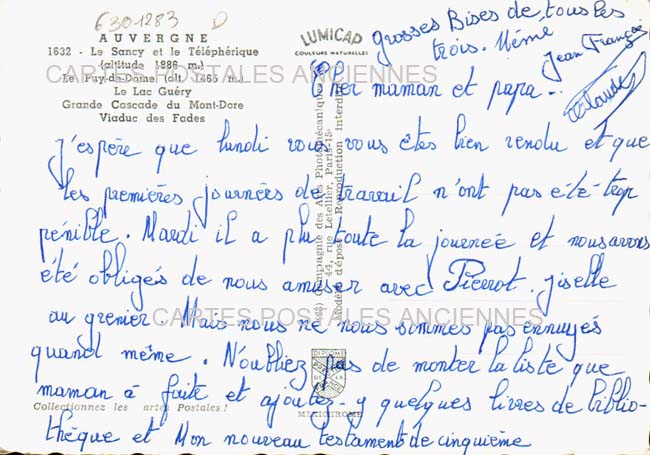 6301283 D
AUVERGNE
1632 - Le Sancy et le Téléphérique
(altitude 1886 m.)
Le Puy-de-Dôme (alt. 1465 m.)
Le Lac Guéry
Grande Cascade du Mont-Dore
Viaduc des Fades
LUMICAD
COULEURS NATURELLES
grosses Bises de tous les
trois. Mémé
Jean François
Claude
CARTES POSTALES ANCIENNES
Cher maman et papa..
J'espère que lundi vous vous êtes bien rendu et que
les premières journées de travail n'ont pas été trop
pénible. Mardi il a plu toute la journeé et nous avons
été obligés de nous amuser avec Pierrot. jiselle
CARTES POSTALES ANCIENNES
au grenier. Mais nous ne nous sommes pas ennuyés
quand même. N'oubliez pas de monter la liste que
maman à faite et ajoutez-y quelques livres de biblio-
thèque et Mon nouveau testament de cinquième
Collectionnez les artes Postales !
Compagnie des Arts Photomécaniques
44, rue Letellier, Paris-15
Modèle déposé Reproduction interdite
DIPLOME
DE LA